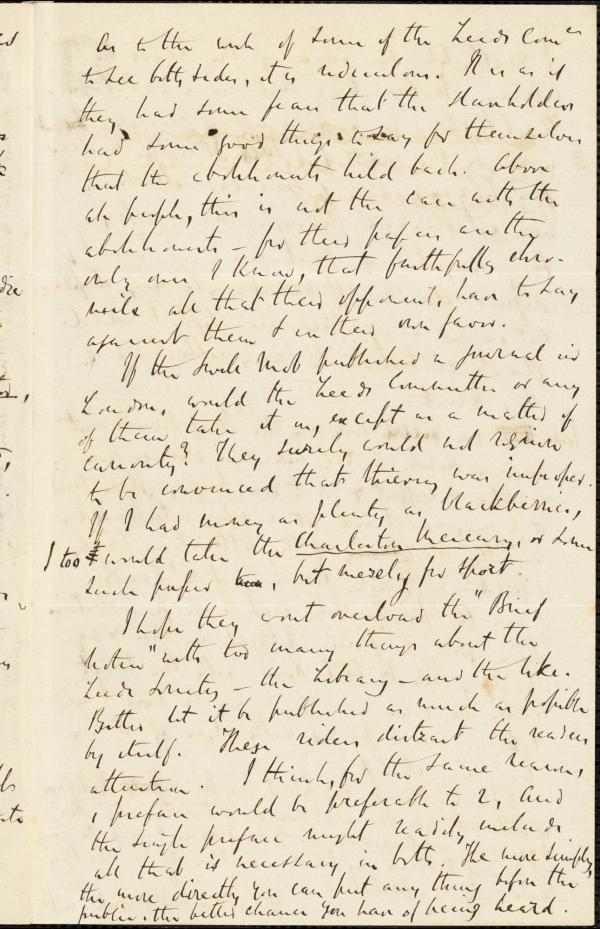 As to the wish of some of the Leeds Comee
to see both sides, it is ridiculous. It is as if
they had some fear that the slaveholders
had some good things to say for themselves
that the abolitionists held back. Above
all people, this is not the case with the
abolitionists – for their papers are the
only ones I know, that faithfully chro-
nicle all that their opponents have to say
against them & in their own favor.
If the Swell Mob published a journal in
London, would the Leeds Committee or any
of them take it in, except as a matter of
curiosity? They surely would not require
to be convinced that thieving was improper.
If I had money as plenty as blackberries,
I too would take the Charleston Mercury, or some
such paper, but merely for sport.
I hope they wont overload the "Brief
Notices" with too many things about the
Leeds Society – the Library – and the like.
Better let it be published as much as possible
by itself. These riders distract the readers
attention. I think, for the same reasons,
1 preface would be preferable to 2, and
the single preface might readily include
all that is necessary in both. The more simply,
the more directly you can put any thing before the
public, the better chance you have of being heard.